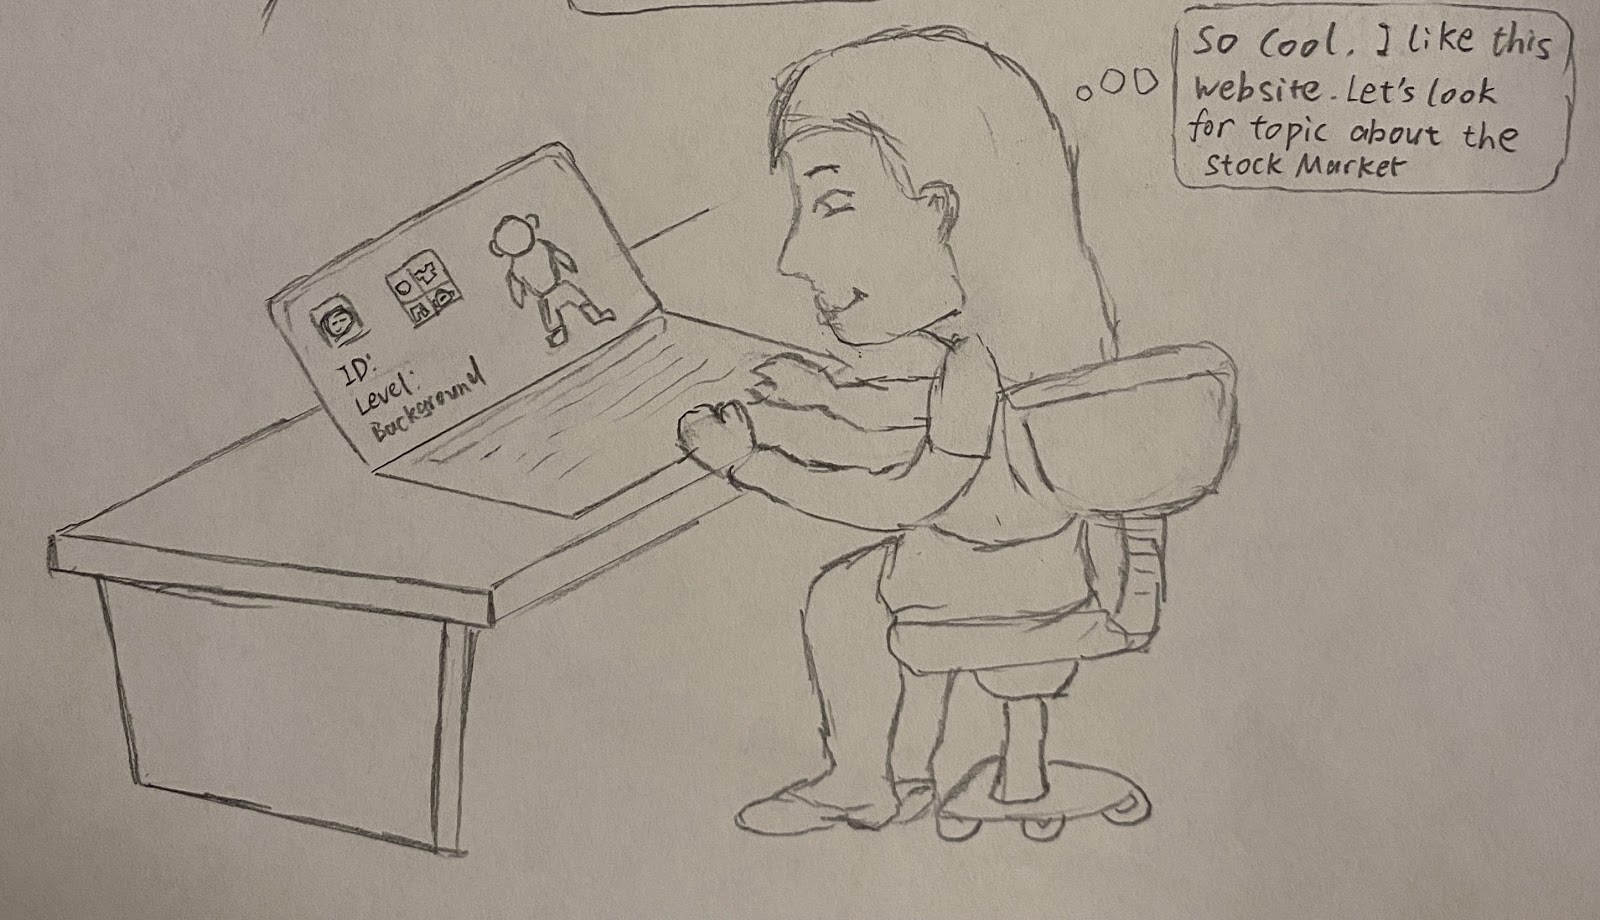 So Cool. I like this
website. Let's look
for topic about the
Stock Market
ID:
Level:
Background